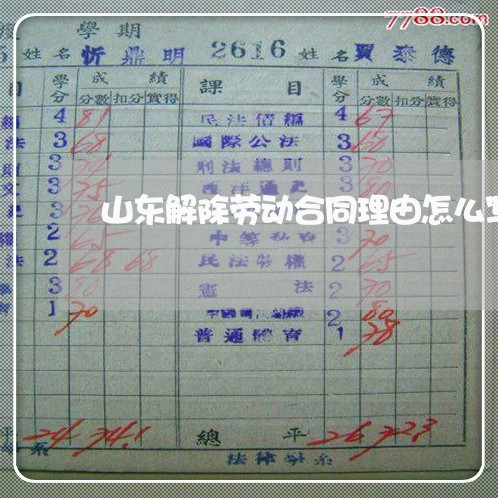 7788.com
學期
姓名 忻鼎明 2616 姓名 賈泰德
目 學分 成績 課目 學分 成績
分數 扣分 實得 分數 扣分 實得
4 81 民法債編 4 67
法 3 68 國際公法 3 60
3 刑法總則 3 70
3 75 西洋通史 3 80
山东解除劳动合同理由怎么写
2 65 3 70
法 2 68 68 民法物權 2 65
3 80 憲法 2 70
1 70 2 80
普通體育 1 78
平 24 74.1 總平 26 72.3
系 法律學系